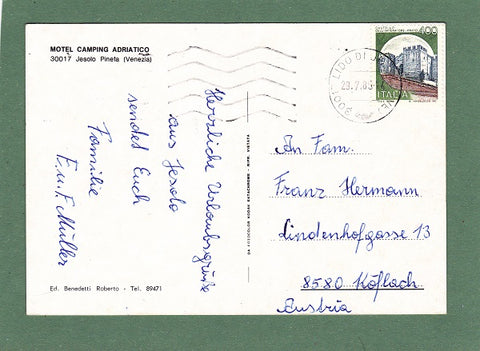 MOTEL CAMPING ADRIATICO
30017 Jesolo Pineta (Venezia)
Herzliche Urlaubsgrüße
aus Jesolo
sendet Euch
Familie
E. u. F. Müller
Ed. Benedetti Roberto - Tel. 89471
400
ITALIA
LIDO DI
29.7.86
An Fam.
Franz Hermann
Lindenhofgasse 13
8580 Köflach
Austria